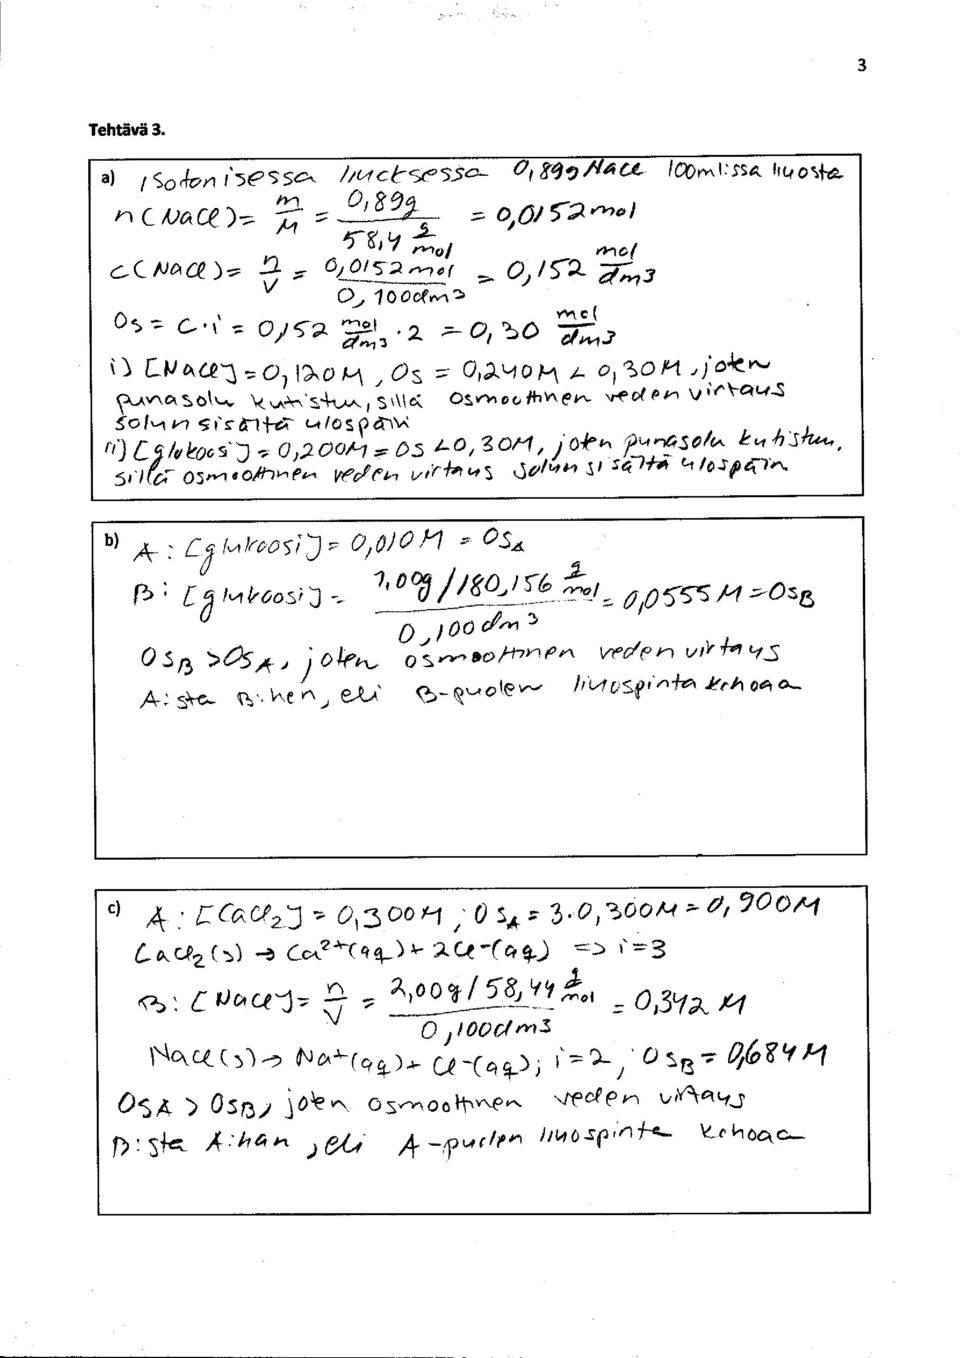 3
Tehtävä 3.
a) Isotonisessa liuoksessa 0,89g NaCl 100ml:ssa liuosta
n(NaCl) = m/M = 0,89g / 58,4 g/mol = 0,0152 mol
c(NaCl) = n/V = 0,0152 mol / 0,100dm3 = 0,152 mol/dm3
Os = c·i = 0,152 mol/dm3 · 2 = 0,30 mol/dm3
i) [NaCl] = 0,120M, Os = 0,240M < 0,30M, joten
punasolu kutistuu, sillä osmoottinen veden virtaus
solun sisältä ulospäin
ii) [glukoosi] = 0,200M = Os < 0,30M, joten punasolu kutistuu,
sillä osmoottinen veden virtaus solun sisältä ulospäin
b) A: [glukoosi] = 0,010M = OsA
B: [glukoosi] = 1,00g / 180,156 g/mol / 0,100dm3 = 0,0555M = OsB
OsB > OsA, joten osmoottinen veden virtaus
A:sta B:hen, eli B-puolen liuospinta kohoaa
c) A: [CaCl2] = 0,300M; OsA = 3·0,300M = 0,900M
CaCl2(s) → Ca2+(aq) + 2Cl-(aq) => i=3
B: [NaCl] = n/V = 2,00g / 58,44 g/mol / 0,100dm3 = 0,342 M
NaCl(s) → Na+(aq) + Cl-(aq); i=2; OsB = 0,684M
OsA > OsB, joten osmoottinen veden virtaus
B:sta A:han, eli A-puolen liuospinta kohoaa